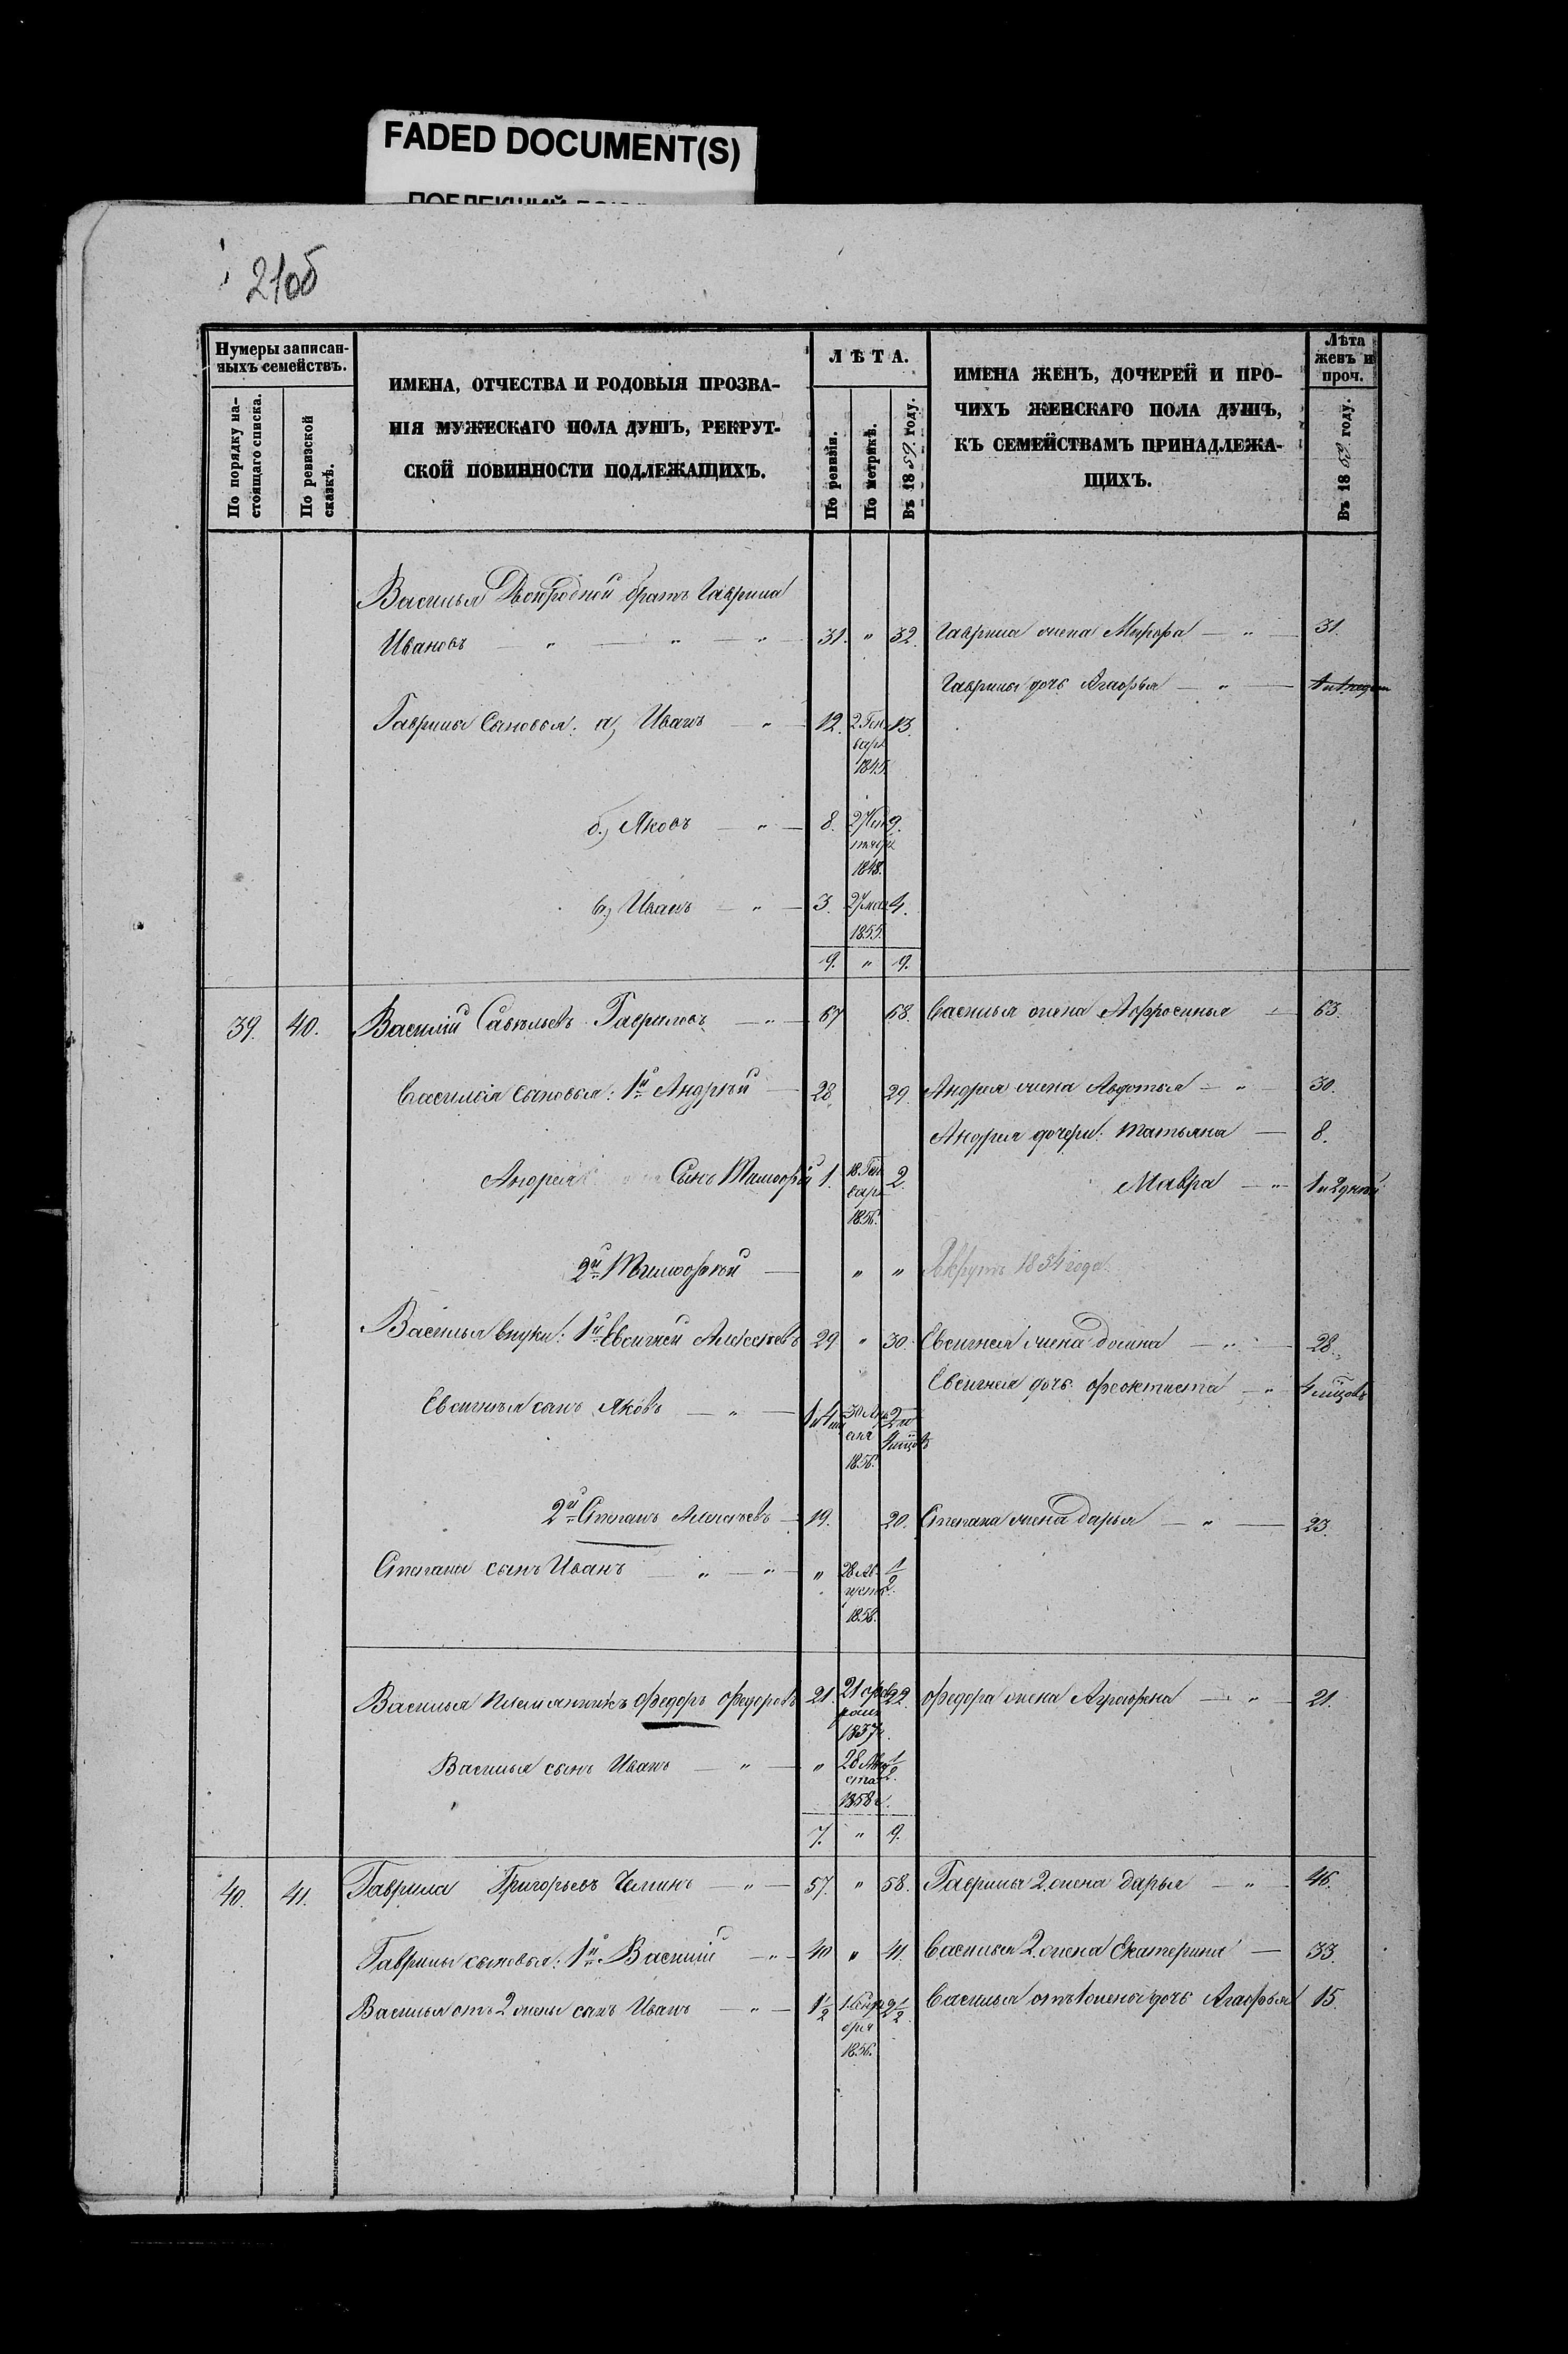 FADED DOCUMENT(S)
210б
Нумеры записан-
ныхъ семействъ.
По порядку на-
стоящаго списка.
По ревизской
сказкѣ.
ИМЕНА, ОТЧЕСТВА И РОДОВЫЯ ПРОЗВА-
НІЯ МУЖЕСКАГО ПОЛА ДУШЪ, РЕКРУТ-
СКОЙ ПОВИННОСТИ ПОДЛЕЖАЩИХЪ.
ЛѢТА.
По ревизіи.
По метрикѣ.
Въ 1859. году.
ИМЕНА ЖЕНЪ, ДОЧЕРЕЙ И ПРО-
ЧИХЪ ЖЕНСКАГО ПОЛА ДУШЪ,
КЪ СЕМЕЙСТВАМЪ ПРИНАДЛЕЖА-
ЩИХЪ.
Лѣта
женъ и
проч.
Въ 1859 году.
Василья Двоюродной братъ Гаврила
Ивановъ — " — " — " 31. " 32. Гаврила жена — " — 31.
Гаврилы дочь Агафья — " —
Гаврилы Сыновья: а, Иванъ — " 12. 2 Ген 13.
варя
1845.
б, Яковъ — " — 8. 9.
1848.
в, Иванъ — " — 3. 27 мая 4.
1855.
9. " 9.
39. 40. Василій Савельевъ Гавриловъ — " — 67 68. Василья жена Афросинья — 63.
Василья сыновья: 1й Андрей — 28 29. Андрея жена Авдотья — " — 30.
Андрея дочери: Татьяна — 8.
Андрея Сынъ Тимофей 1. 18. Ген 2. Мавра — " 1 и 2 дней
варя
1856.
2й Тимофей — " " Рекрутъ 1854 года.
Василья внуки: 1й Евсигней Алексѣевъ 29 " 30. Евсигнея жена Домна — " — 28.
Евсигнея дочь Феоктиста — " 4 мѣсцовъ
Евсигнея сынъ Яковъ — " — 1 и 4 30 Апр 2 и
еля 4 мѣсцовъ
1856.
2й Степанъ Алексѣевъ — 19. 20. Степана жена Дарья — " — 23.
Степана сынъ Иванъ — " — " — " 28 Ав 1/2.
густа
1858.
Василья племянникъ Федоръ Федоровъ 21. 21 фев 22. Федора жена Аграфена — " — 21.
раля
1837 г.
Василья сынъ Иванъ — " — " 28 Авгу 1/2.
ста
1858 г.
7. " 9.
40. 41. Гаврила Григорьевъ — " — 57. " 58. Гаврилы 2. жена Дарья — " — 46.
Гаврилы сыновья: 1й Василій — " — 40 " 41. Василья 2. жена Екатерина — 33.
Василья отъ 2 жены сынъ Иванъ — " — 1 1/2 2 1/2 Василья отъ 1 жены дочь Агафья 15.
1856.